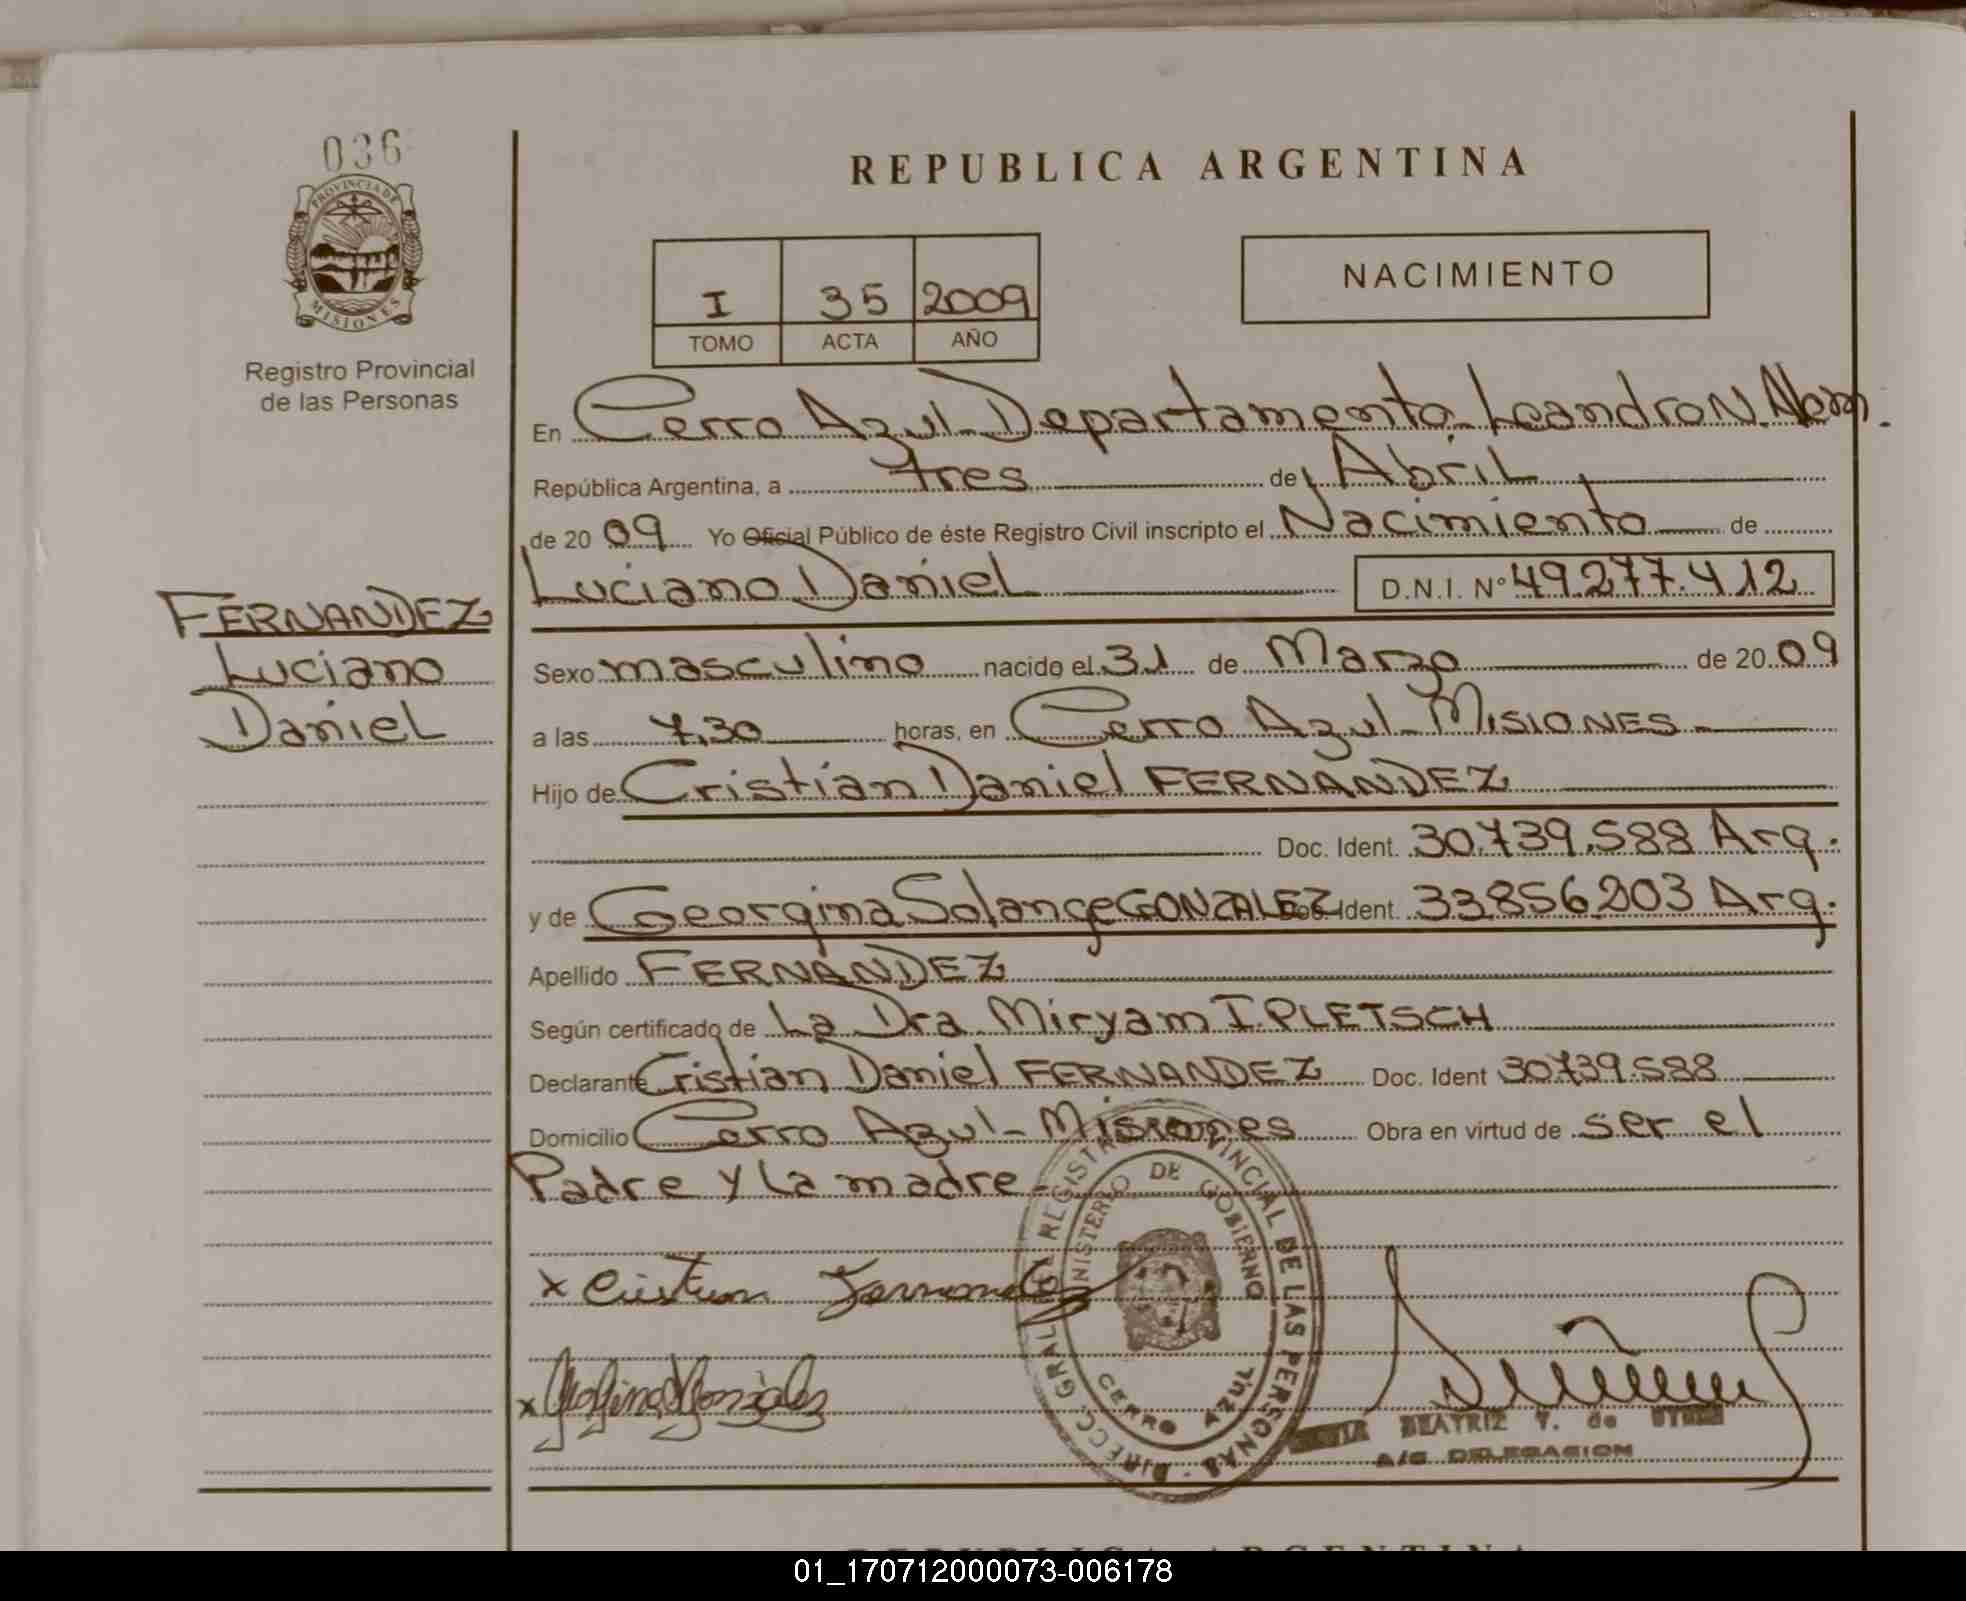 036
PROVINCIA DE
MISIONES
Registro Provincial
de las Personas
FERNANDEZ
Luciano
Daniel
REPUBLICA ARGENTINA
I 35 2009
TOMO ACTA AÑO
NACIMIENTO
En Cerro Azul - Departamento Leandro N. Alem.
República Argentina, a tres de Abril
de 2009 Yo Oficial Público de éste Registro Civil inscripto el Nacimiento de
Luciano Daniel D.N.I. Nº 49.277.412
Sexo masculino nacido el 31 de Marzo de 2009
a las 7,30 horas, en Cerro Azul - MISIONES
Hijo de Cristian Daniel FERNANDEZ
Doc. Ident. 30.739.588 Arg.
y de Georgina Solange GONZALEZ Doc. Ident. 33.856.203 Arg.
Apellido FERNANDEZ
Según certificado de La Dra Miryam I. PLETSCH
Declarante Cristian Daniel FERNANDEZ Doc. Ident 30.739.588
Domicilio Cerro Azul - Misiones Obra en virtud de ser el
Padre y La madre
DIRECC. GRAL. REGISTRO PROVINCIAL DE LAS PERSONAS
MINISTERIO DE GOBIERNO
CERRO AZUL
x Cristian Fernandez
BEATRIZ V. de
A/C DELEGACION
REPUBLICA ARGENTINA
01_170712000073-006178